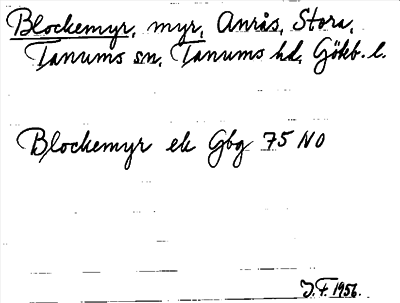 Blockemyr, myr, Anrås, Stora,
Tanums sn, Tanums hd, Göteb. l.
Blockemyr ek Gbg 75 NO
J.F. 1956.